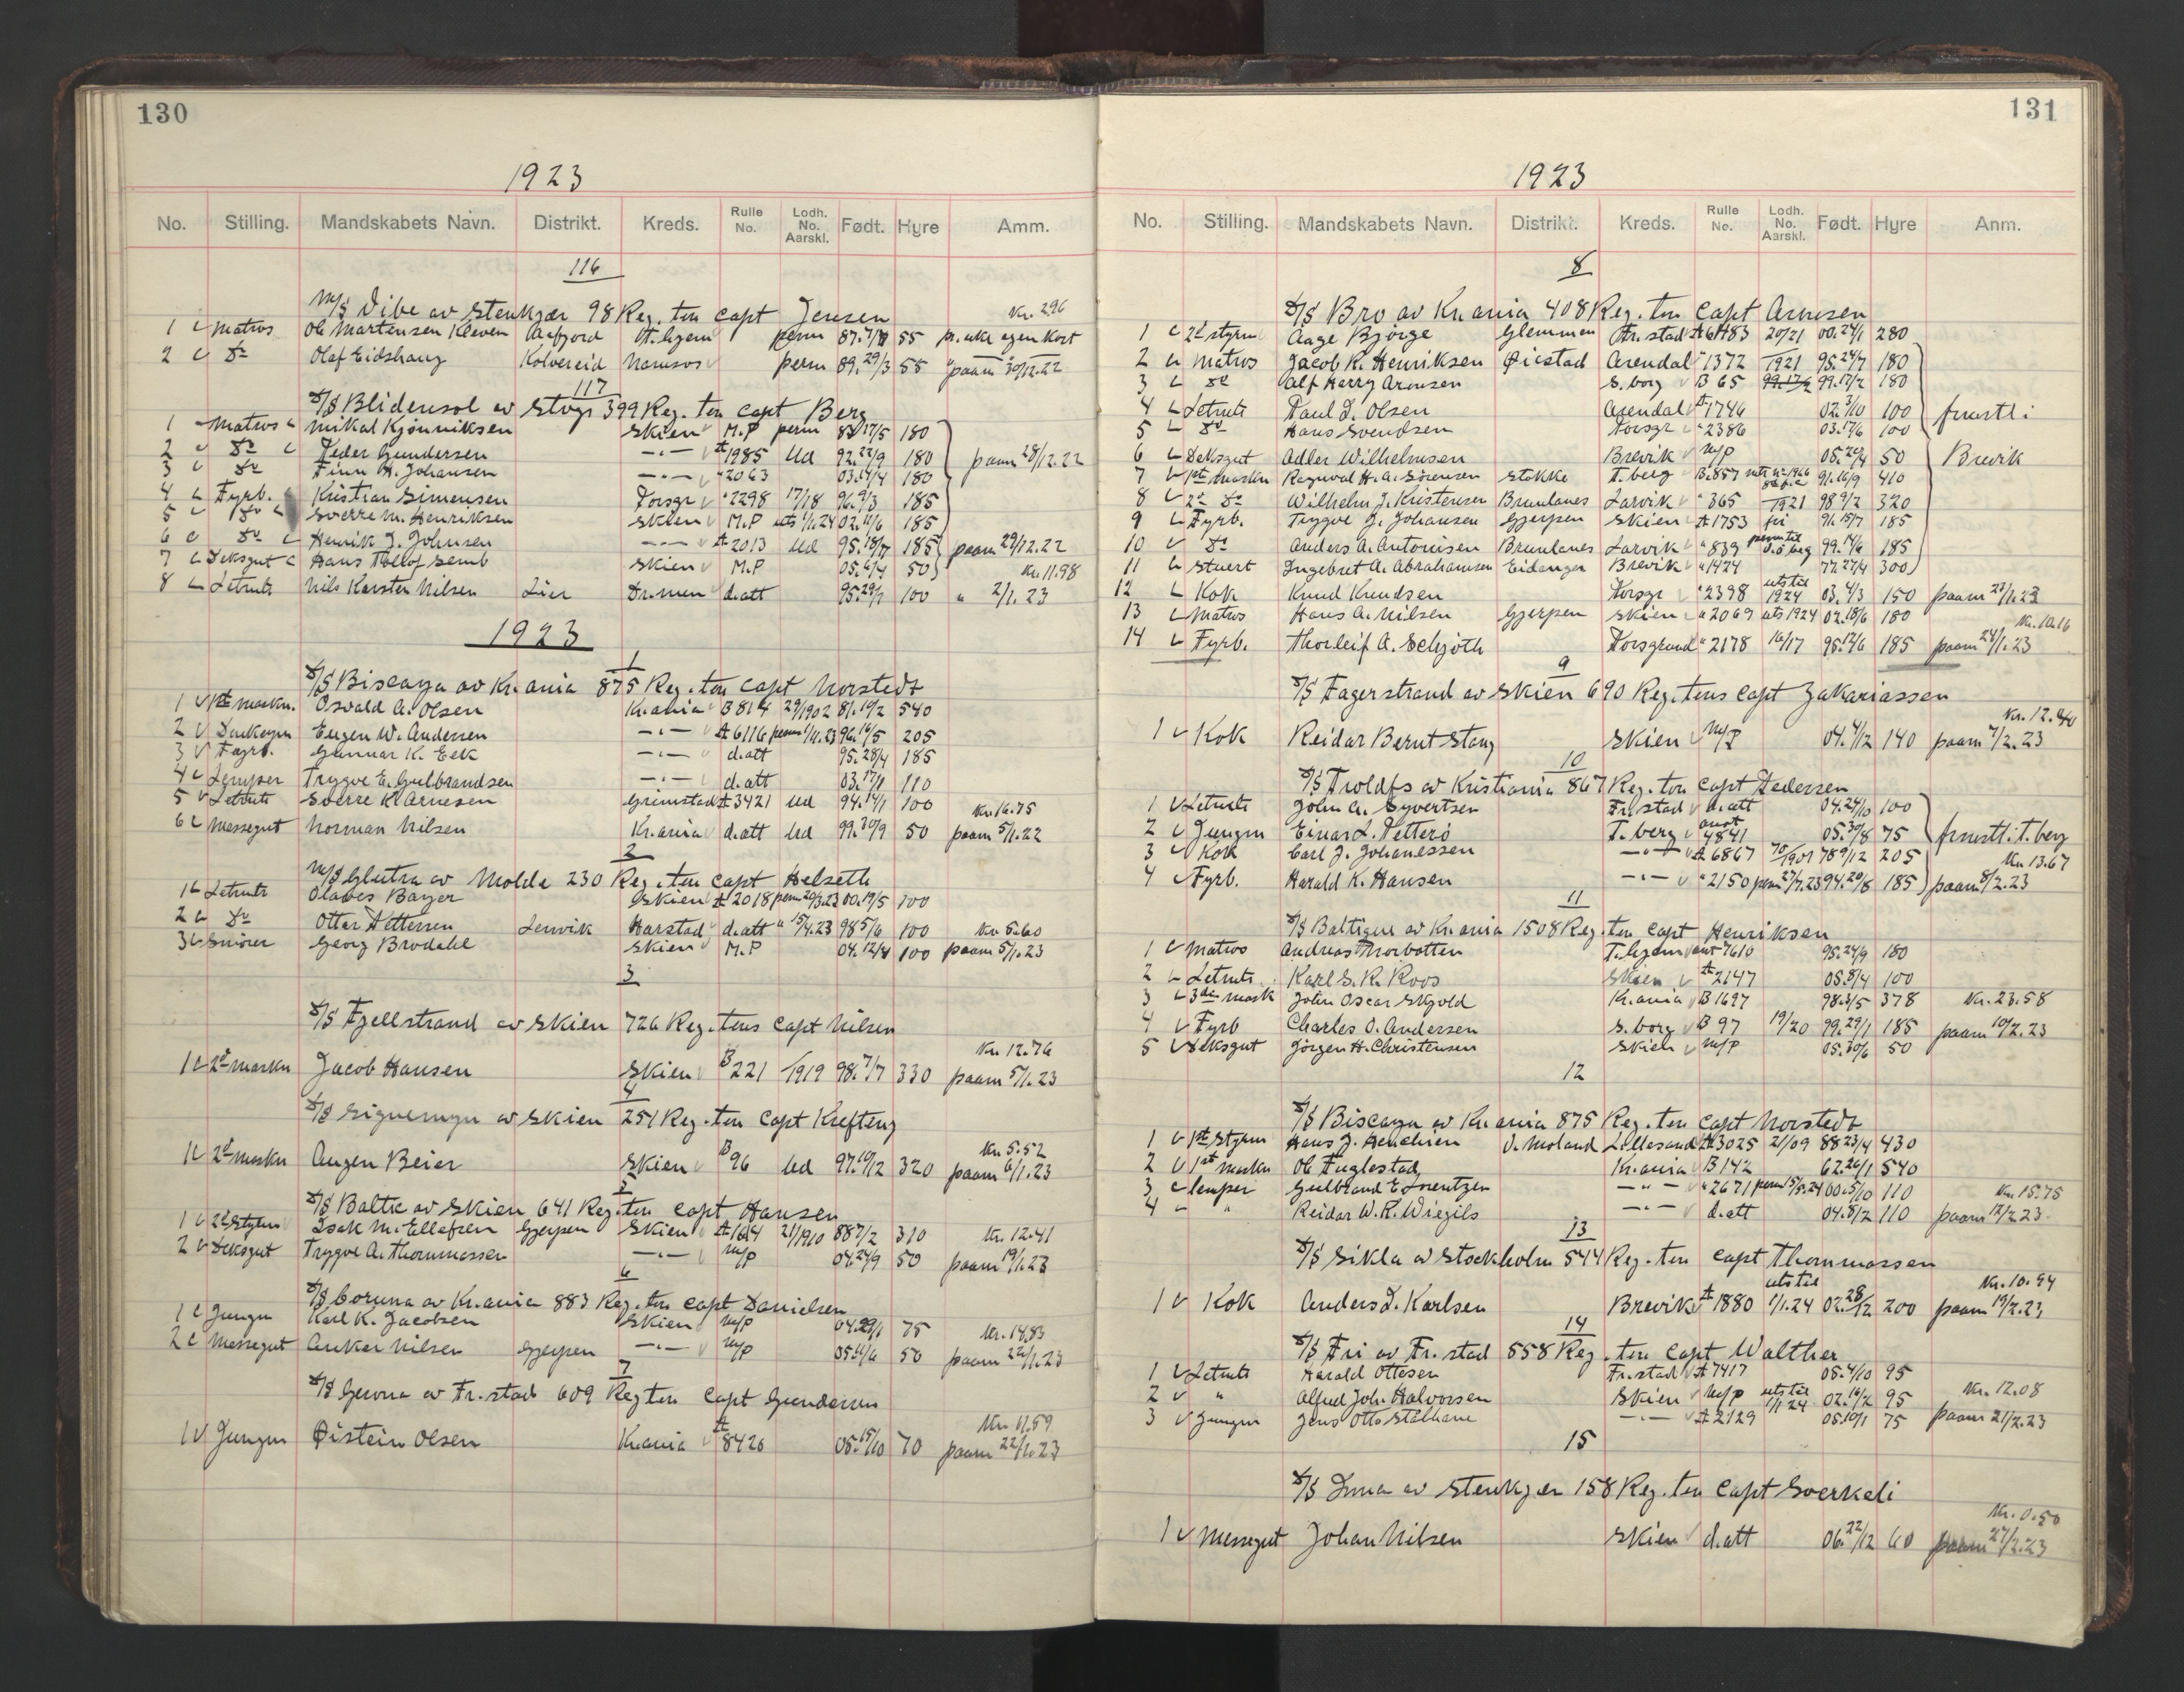 130
1923
No. Stilling. Mandskabets Navn. Distrikt. Kreds. Rulle No. Lodh. No. Aarskl. Født. Hyre Amm.
116
M/S Vibe av Stenkjær 98 Reg. ton Capt Jensen Kr. 2.96
1 Matros Ole Martensen Kleven Aafjord perm 55
2 Do Olaf Eidshaug Kolvereid Namsos perm 89. 29/3 55 paam 30/12.22
117
S/S Blidensol av Stvgr 399 Reg. ton Capt Berg
1 Matros Mikal Kjønniksen Skien M.P perm 83 17/5 180
2 Do Peder Gundersen -"- A 1985 Ud 92. 22/9 180 paam 28/12.22
3 Do Finn H. Johansen -"- " 2063 03. 14/4 180
4 Fyrb. Kristian Simensen Porsgr " 2298 17/18 96. 9/3 185
5 Do Sverre M. Henriksen Skien M.P uts 1/1.24 02. 11/6 185
6 Do Henrik J. Johnsen -"- A 2013 Ud 95. 18/7 185 paam 29/12.22
7 Deksgut Hans Thellof Semb Skien M.P 05. 6/4 50 Kr. 11.98
8 Letmtr Nils Karsten Nilsen Lier Dr.men d.att 95. 29/1 100 " 2/1. 23
1923
1
S/S Biscaya av Kr.ania 875 Reg. ton Capt Norstedt
1 1ste Maskn. Osvald A. Olsen Kr.ania B 814 29/1902 81. 10/2 540
2 Dunkeymn Eugen W. Andersen -"- A 6116 perm 1/11.23 96. 16/5 205
3 Fyrb. Gunnar K. Eek -"- d.att 95. 28/4 185
4 Lemper Trygve E. Gulbrandsen -"- d.att 03. 17/1 110
5 Letmtr Sverre K. Arnesen Grimstad A 3421 Ud 94. 14/1 100 Kr. 16.75
6 Messegut Norman Nilsen Kr.ania d.att Ud 99. 30/9 50 paam 5/1.22
2
M/S Glutra av Molde 230 Reg. ton Capt Helseth
1 Letmtr Olaves Bayer Skien A 2018 perm 20/3.23 00. 19/5 100
2 Do Ottar Pettersen Lenvik Harstad d.att " 15/4.23 98 5/6 100 Kr. 5.60
3 Smører Georg Brodahl Skien M.P 04. 12/4 100 paam 5/1.23
3
S/S Fjellstrand av Skien 726 Reg. tons Capt Nilsen
Kr. 12.76
1 2d Maskn Jacob Hansen Skien B 221 /1919 98. 7/7 330 paam 5/1.23
4
S/S Signemyn av Skien 251 Reg. ton Capt Krefting
Kr. 5.52
1 2d Maskn Augen Beier Skien B 96 Ud 97. 10/12 320 paam 6/1.23
5
S/S Baltic av Skien 641 Reg. ton Capt Hansen
1 2d Styrm Isak M. Ellefsen Gjerpen Skien A 1614 21/1910 88 7/2 310 Kr. 12.41
2 Deksgut Trygve A. Thommassen -"- M/P 04. 24/9 50 paam 19/1.23
6
S/S Coruna av Kr.ania 883 Reg. ton Capt Danielsen
1 Jungm Karl K. Jacobsen Skien M/P 04. 29/1 75 Kr. 14.83
2 Messegut Anker Nilsen Gjerpen -"- M/P 05. 11/6 50 paam 22/1.23
7
S/S Gerona av Fr.stad 609 Reg ton Capt Gundersen
Kr. 11.59
1 Jungm Øistein Olsen Kr.ania A 8426 05. 15/10 70 paam 22/1.23
131
1923
No. Stilling. Mandskabets Navn. Distrikt. Kreds. Rulle No. Lodh. No. Aarskl. Født. Hyre Anm.
8
S/S Bro av Kr.ania 408 Reg. ton Capt Arnesen
1 2d Styrm Aage Bjørge Glemmen Fr.stad A 6483 20/21 00. 24/1 280
2 Matros Jacob K. Henriksen Øiestad Arendal " 1372 /1921 95. 24/7 180
3 Do Alf Harry Arnesen S.borg B 65 99. 17/2 180
4 Letmtr Paul I. Olsen Arendal A 1746 02. 3/10 100 fmstl i
5 Do Hans Svendsen Porsgr " 2386 03. 17/6 100
6 Deksgut Adler Wilhelmsen Brevik M/P 05. 20/4 50 Brevik
7 1ste Maskn Ragnvald H. A. Sørensen Stokke T.berg B 857 91. 16/9 410
8 2d Do Wilhelm J. Kristensen Brunlanes Larvik " 365 /1921 98 9/2 320
9 Fyrb. Trygve J. Johansen Gjerpen Skien A 1753 fri 91. 15/7 185
10 Do Anders A. Antonisen Brunlanes Larvik " 839 99. 14/6 185
11 Stuert Ingebret A. Abrahamsen Eidanger Brevik " 1424 77. 27/4 300
12 Kok Knud Knudsen Porsgr " 2398 uts til 1924 03. 4/3 150 paam 23/1.23
13 Matros Hans A. Nilsen Gjerpen Skien " 2069 uts 1924 02. 18/6 180 Kr. 10.16
14 Fyrb. Thorleif A. Schjøth Porsgrund " 2178 16/17 95. 12/6 185 paam 24/1.23
9
S/S Fagerstrand av Skien 690 Reg. tons Capt Zakariassen
Kr. 12.40
1 Kok Reidar Bernt Stang Skien M/P 04. 4/12 140 paam 7/2.23
10
S/S Troldfos av Kristiania 867 Reg. ton Capt Pedersen
1 Letmtr John A. Syvertsen Fr.stad d.att 04. 24/10 100
2 Jungm Einar L. Petterø T.berg anot 4841 05. 30/8 75 fmstl i T.berg
3 Kok Carl J. Johanessen -"- A 6867 70/1901 78 9/12 205 Kr. 13.67
4 Fyrb. Harald K. Hansen -"- " 2150 perm 27/7.23 94. 20/8 185 paam 8/2.23
11
S/S Baltique av Kr.ania 1508 Reg. ton Capt Henriksen
1 Matros Andreas Norbotten T.hjem ant 7610 95. 24/9 180
2 Letmtr Karl S. R. Roos Skien A 2147 05. 8/4 100
3 3die Mask John Oscar Skjold Kr.ania B 1697 98. 3/5 378 Kr. 23.58
4 Fyrb Charles O. Andersen S.borg B 97 19/20 99. 29/1 185 paam 10/2.23
5 Deksgut Jørgen H. Christensen Skien M/P 05. 30/6 50
12
S/S Biscaya av Kr.ania 875 Reg. ton Capt Norstedt
1 1st Styrm Hans J. V. Moland Lillesand A 3025 21/09 88 23/4 430
2 1st Maskn Ole Fuglestad Kr.ania B 142 62. 26/1 540
3 lemper Gulbrand E Lorentzen -"- " 2671 perm 15/5.24 00. 5/10 110 Kr. 15.75
4 " Reidar W. R. Wiegils -"- d.att 04. 8/2 110 paam 12/2.23
13
S/S Sikla av Stockholm 544 Reg. ton Capt Thommassen
Kr. 10.94
1 Kok Anders I. Karlsen Brevik A 1880 uts til 1/1.24 02. 28/12 200 paam 19/2.23
14
S/S Fri av Fr.stad 558 Reg. ton Capt Walther
1 Letmtr Harald Ottesen Fr.stad A 7417 05. 4/10 95
2 " Alfred Joh. Halvorsen Skien M/P uts til 1/1 24 02. 16/2 95 Kr. 12.08
3 Jungm Jens Otto Stålhane -"- A 2129 05. 10/1 75 paam 21/2.23
15
S/S Inna av Stenkjær 158 Reg. ton Capt Sverkeli
Kr. 0.50
1 Messegut Johan Nilsen Skien d.att 06. 22/12 60 paam 27/2.23